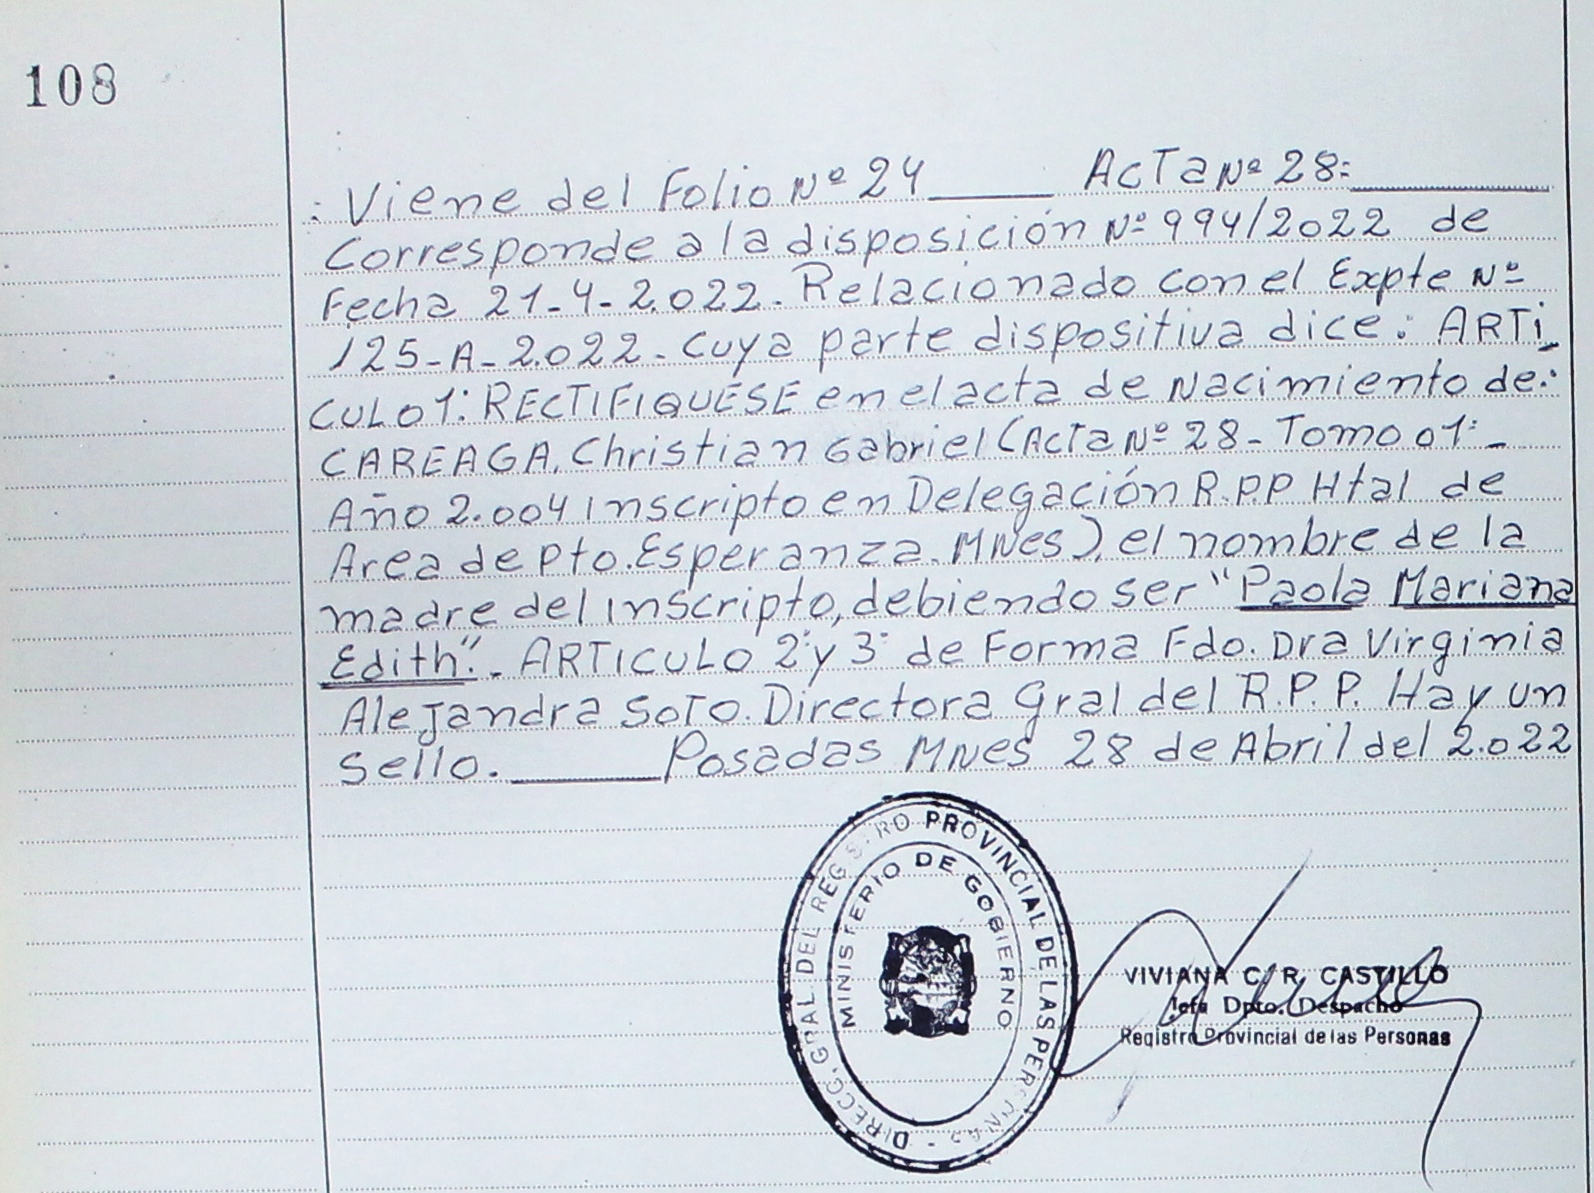 108
: Viene del Folio Nº 24 ____ Acta Nº 28: ____
Corresponde a la disposición Nº 994/2022 de
Fecha 21-4-2.022. Relacionado con el Expte Nº
125-A-2.022. Cuya parte dispositiva dice: ARTi_
CULO 1: RECTIFIQUESE en el acta de Nacimiento de:
CAREAGA, Christian Gabriel (Acta Nº 28 - Tomo 01: -
Año 2.004 inscripto en Delegación R.PP Htal de
Area de Pto. Esperanza. MNes), el nombre de la
madre del inscripto, debiendo ser "Paola Mariana
Edith". - ARTICULO 2º y 3º de Forma Fdo. Dra Virginia
Alejandra Soto. Directora Gral del R.P.P. Hay un
Sello. ____ Posadas MNes 28 de Abril del 2.022
DIRECC. GRAL DEL REGISTRO PROVINCIAL DE LAS PERSONAS -
MINISTERIO DE GOBIERNO
VIVIANA C. R. CASTILLO
Jefa Dpto. Despacho
Registro Provincial de las Personas